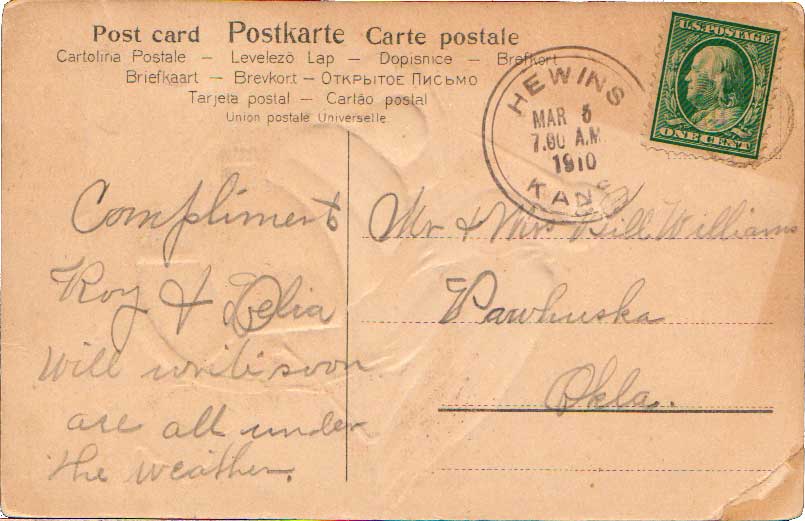 Post card Postkarte Carte postale
Cartolina Postale – Levelező Lap – Dopisnice – Brefkort
Briefkaart – Brevkort – Открытое Письмо
Tarjeta postal – Cartão postal
Union postale Universelle
U.S. POSTAGE
ONE CENT
HEWINS
MAR 5
7.00 A.M.
1910
KANS
Compliment
Roy & Delia
Will write soon
are all under
the weather.
Mr & Mrs Bill Williams
Pawhuska
Okla.